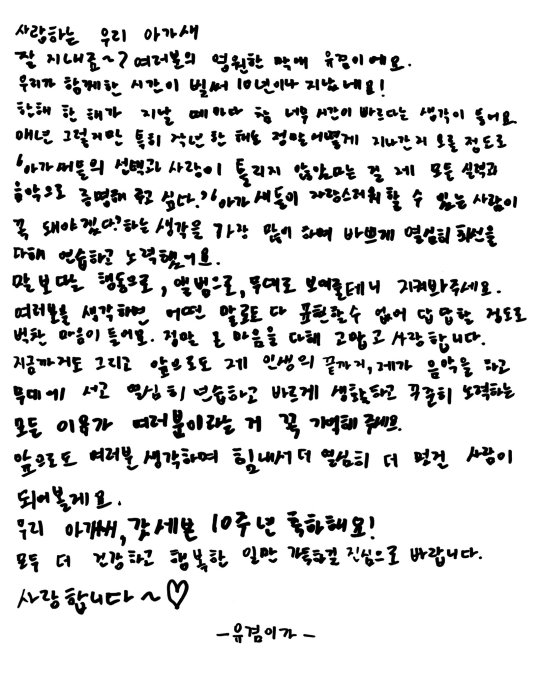 사랑하는 우리 아가새
잘 지내죠~? 여러분의 영원한 막내 유겸이에요.
우리가 함께한 시간이 벌써 10년이나 지났네요!
한해 한 해가 지날 때마다 참 너무 시간이 빠르다는 생각이 들어요
매년 그렇지만 특히 작년 한 해는 정말 어떻게 지나간지 모를 정도로
'아가새들의 선택과 사랑이 틀리지 않았다는 걸 제 모든 실력과
음악으로 증명해 주고 싶다.' '아가새들이 자랑스러워 할 수 있는 사람이
꼭 돼야겠다.' 하는 생각을 가장 많이 하며 바쁘게 열심히 최선을
다해 연습하고 노력했어요.
말보다는 행동으로, 앨범으로, 무대로 보여줄테니 지켜봐주세요.
여러분을 생각하면 어떤 말로도 다 표현할수 없어 답답할 정도로
벅찬 마음이 들어요. 정말 온 마음을 다해 고맙고 사랑합니다.
지금까지도 그리고 앞으로도 제 인생의 끝까지, 제가 음악을 하고
무대에 서고 열심히 연습하고 바르게 생활하고 꾸준히 노력하는
모든 이유가 여러분이라는 거 꼭 기억해 주세요.
앞으로도 여러분 생각하며 힘내서 더 열심히 더 멋진 사람이
되어볼게요.
우리 아가새, 갓세븐 10주년 축하해요!
모두 더 건강하고 행복한 일만 가득하길 진심으로 바랍니다.
사랑합니다~♡
-유겸이가-